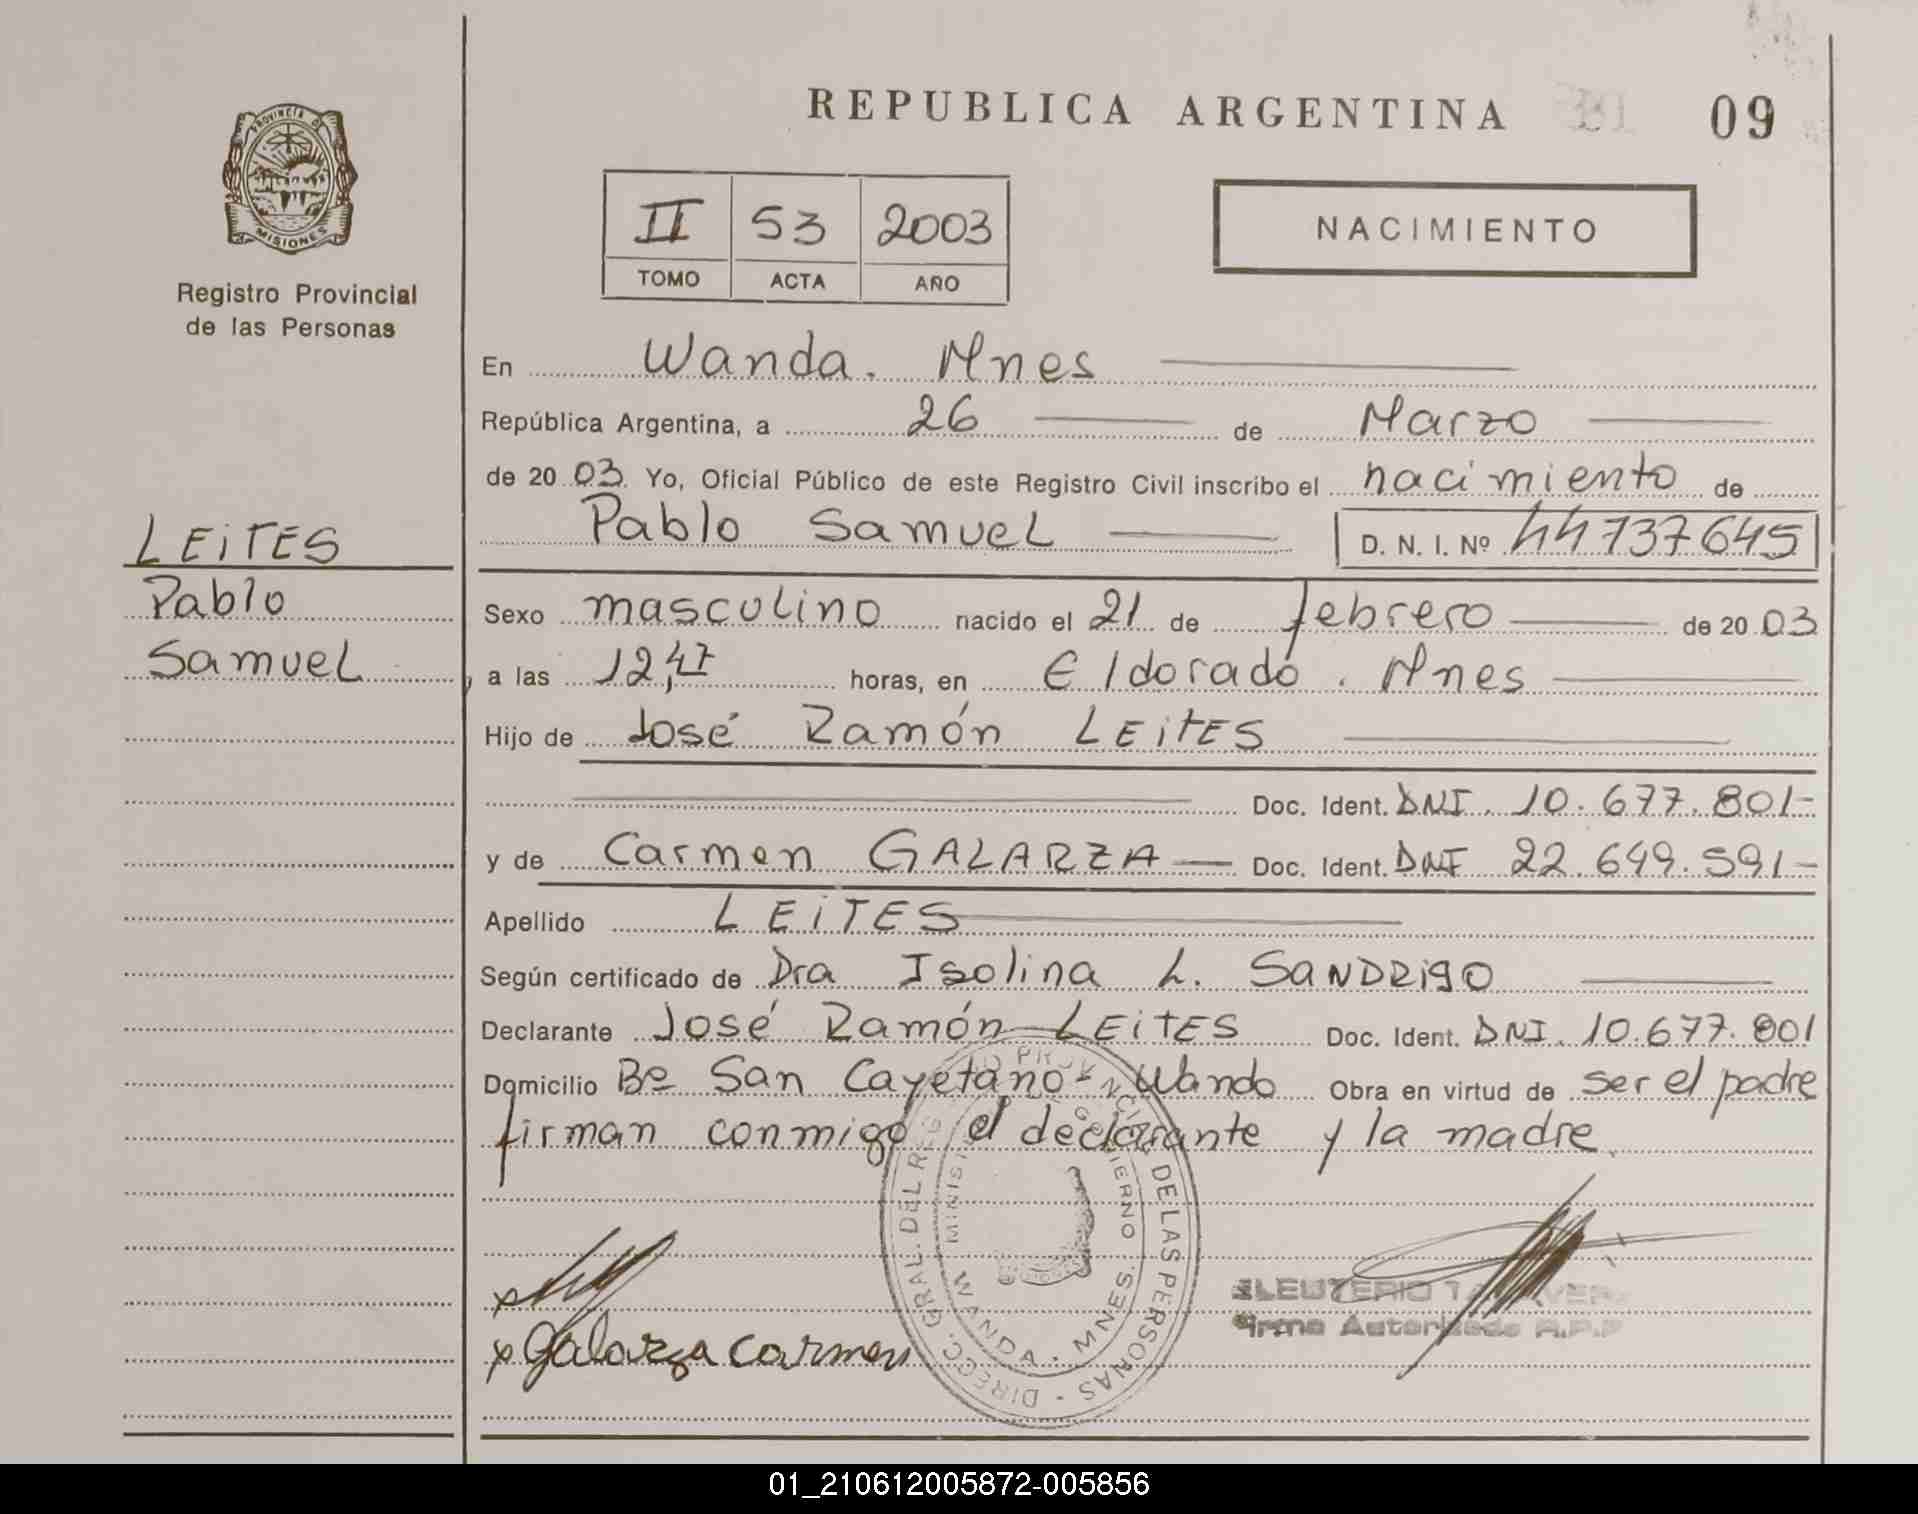 REPUBLICA ARGENTINA
09
PROVINCIA DE
MISIONES
Registro Provincial
de las Personas
II 53 2003
TOMO ACTA AÑO
NACIMIENTO
En Wanda. Mnes
República Argentina, a 26 de Marzo
de 20 03 Yo, Oficial Público de este Registro Civil inscribo el nacimiento de
Pablo Samuel D. N. I. Nº 44737645
LEiTES
Pablo
Samuel
Sexo masculino nacido el 21 de febrero de 20 03
a las 12,47 horas, en Eldorado. Mnes
Hijo de José Ramón LEiTES
Doc. Ident. DNI. 10.677.801-
y de Carmen GALARZA Doc. Ident. DNI 22.649.591-
Apellido LEiTES
Según certificado de Dra Isolina L. SANDRigO
Declarante José Ramón LEiTES Doc. Ident. DNI. 10.677.801
Domicilio Bº San Cayetano - Wanda Obra en virtud de ser el padre
firman conmigo el declarante y la madre.
DIRECC. GRAL. DEL REG PROVINCIAL DE LAS PERSONAS
WANDA - MNES.
x
x Galarza Carmen
ELEUTERIO
Firma Autorizada R.P.P
01_210612005872-005856